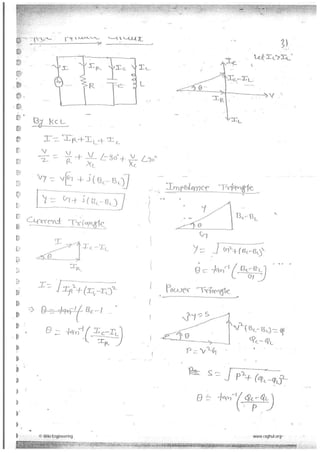 31
Let Ic>IL
I
IR
Ic
IL
R
C
L
Ic
Ic-IL
θ
V
IR
IL
By KCL
I = IR+IL+IC
V/Z = V/R + V/XL ∠-90° + V/XC ∠90°
VY = V[G + j(Bc-BL)]
Y = G + j(Bc-BL)
Current Triangle
I
Ic-IL
θ
IR
I = √IR²+(Ic-IL)²
θ = tan⁻¹(Ic-IL/IR)
Impedance Triangle
Y
Bc-BL
θ
G
Y = √G²+(Bc-BL)²
θ = tan⁻¹(Bc-BL/G)
Power Triangle
V²Y=S
V²(Bc-BL)=Q
Qc-QL
θ
P=V²G
S = √P²+(Qc-QL)²
θ = tan⁻¹(Qc-QL/P)
© Wiki Engineering
www.raghul.org